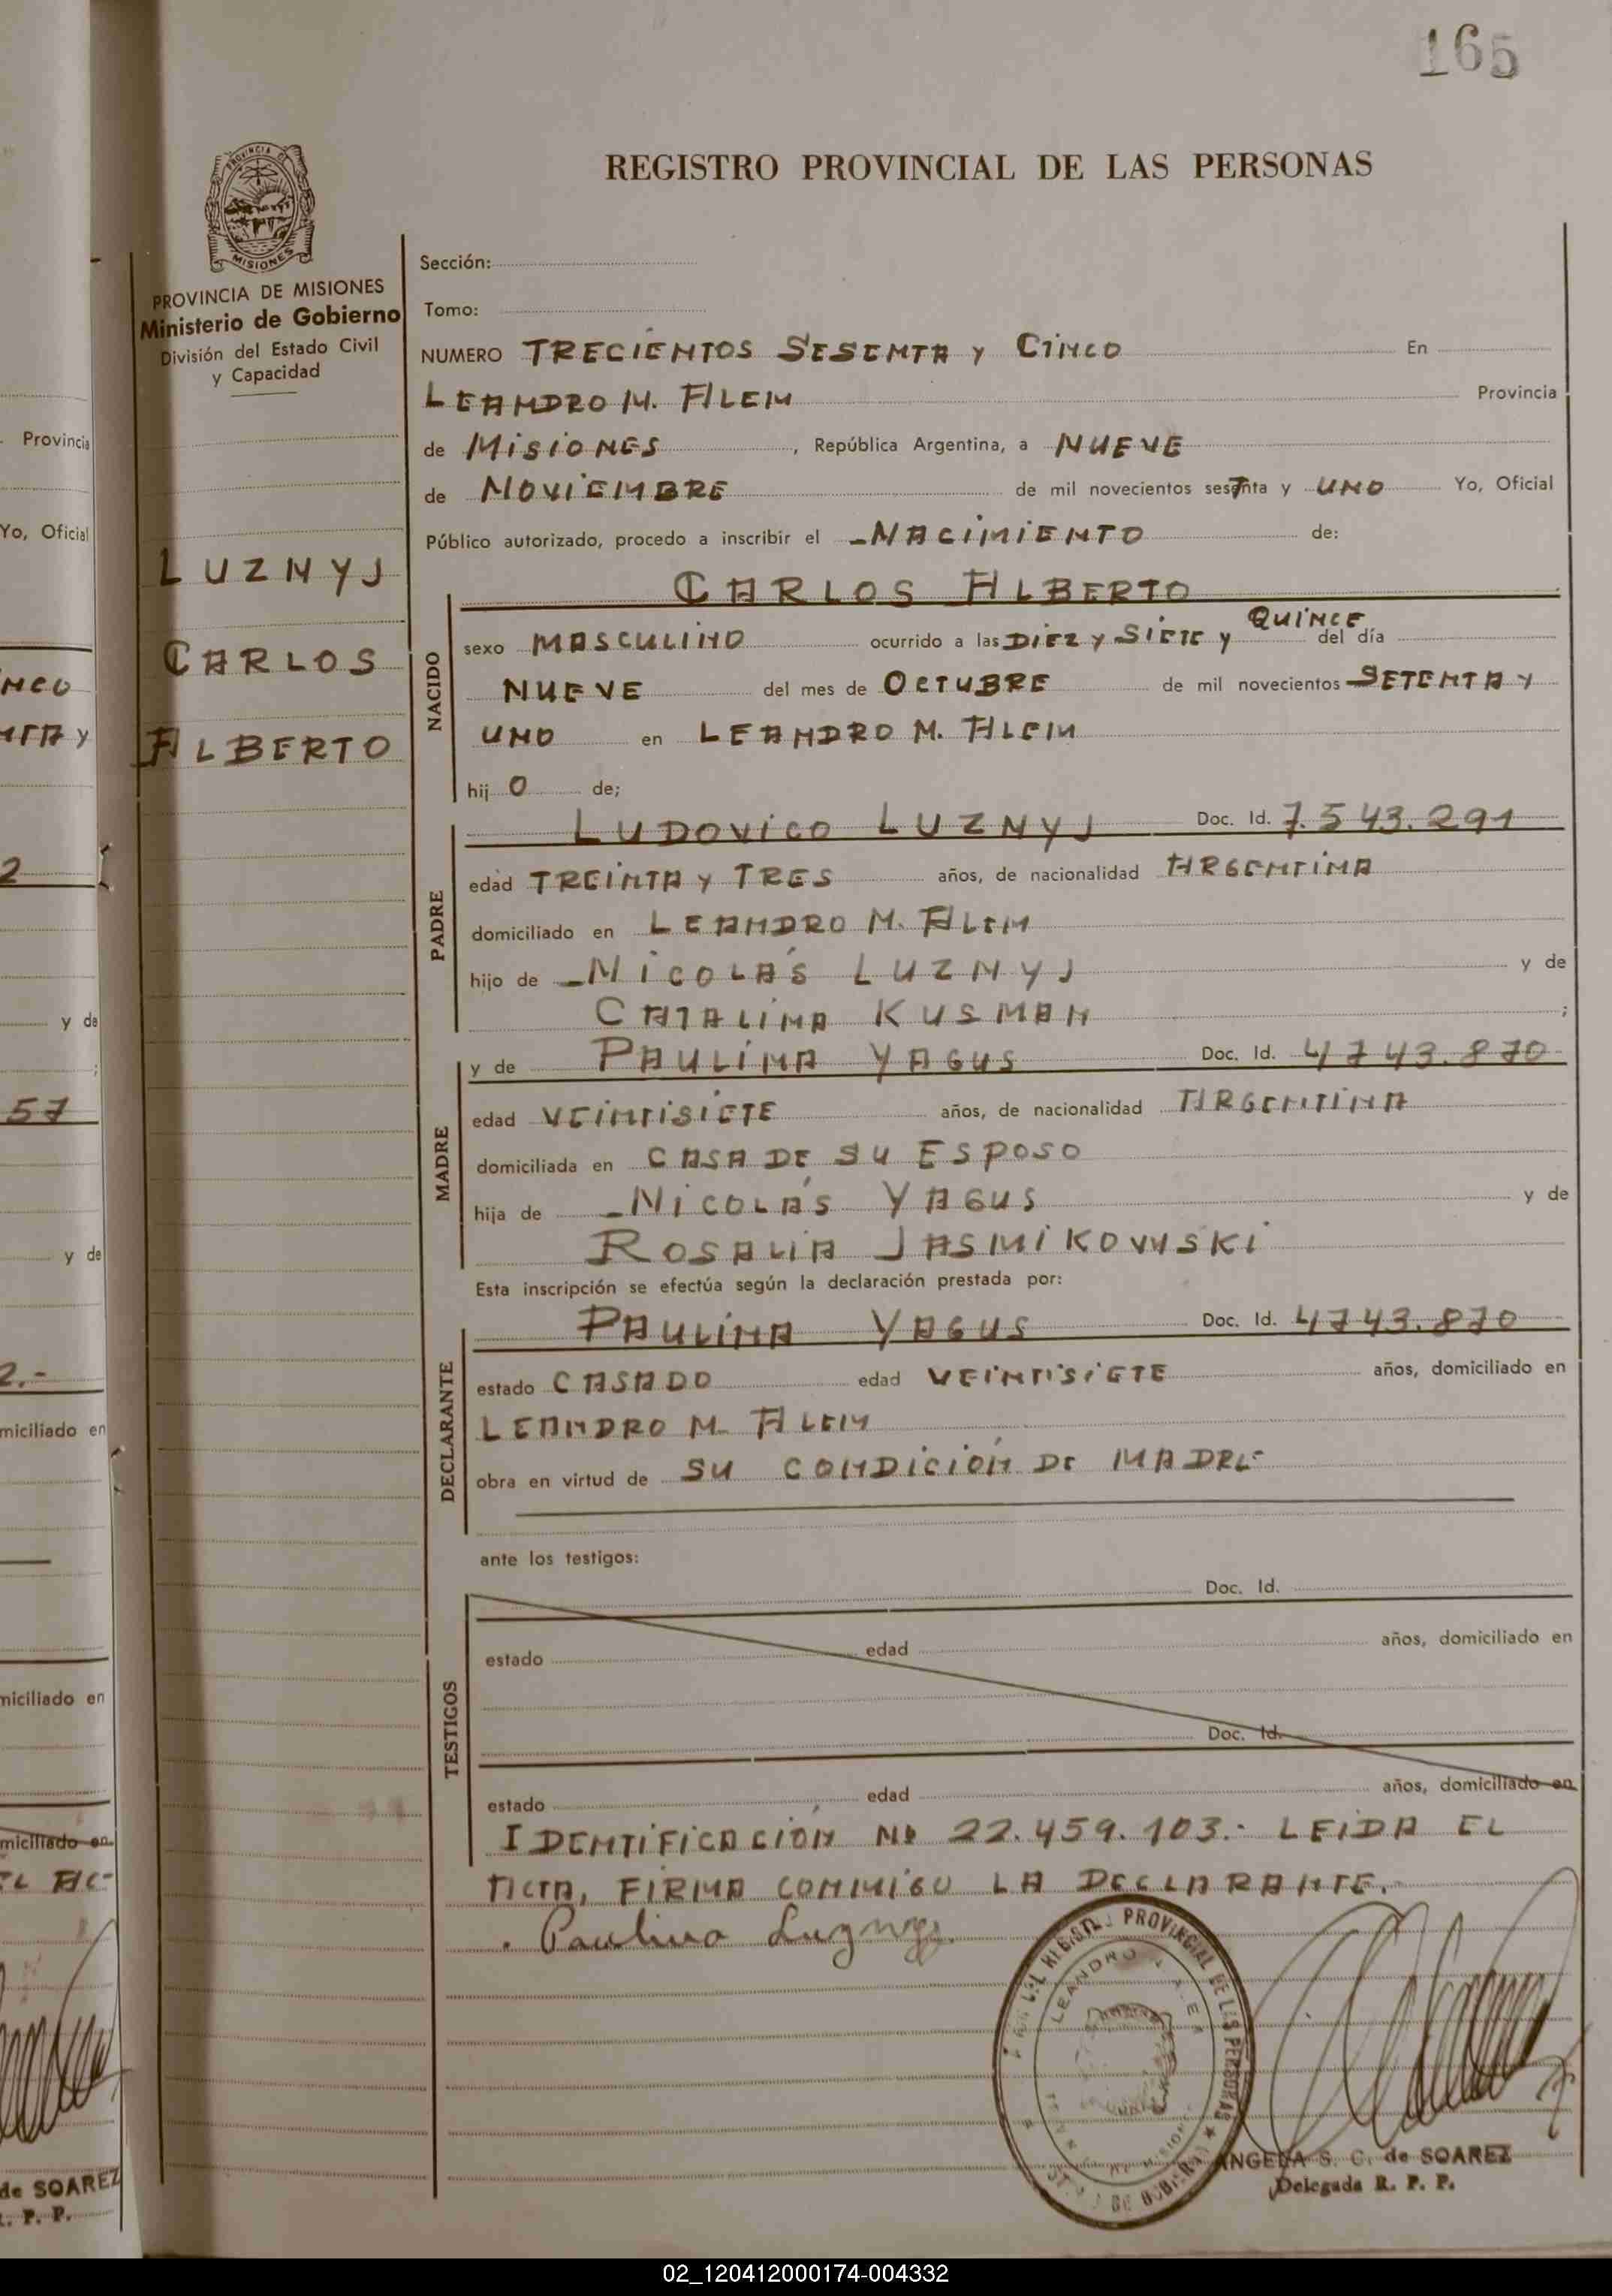 165
REGISTRO PROVINCIAL DE LAS PERSONAS
PROVINCIA DE MISIONES
Ministerio de Gobierno
División del Estado Civil
y Capacidad
LUZNYJ
CARLOS
ALBERTO
Sección:
Tomo:
NUMERO TRECIENTOS SESENTA y CINCO En
LEANDRO N. ALEM Provincia
de MISIONES, República Argentina, a NUEVE
de NOVIEMBRE de mil novecientos setenta y UNO Yo, Oficial
Público autorizado, procedo a inscribir el -NACIMIENTO de:
CARLOS ALBERTO
NACIDO
sexo MASCULINO ocurrido a las DIEZ y SIETE y QUINCE del día
NUEVE del mes de OCTUBRE de mil novecientos SETENTA y
UNO en LEANDRO N. ALEM
hij O de;
PADRE
LUDOVICO LUZNYJ Doc. Id. 7.543.291
edad TREINTA y TRES años, de nacionalidad ARGENTINA
domiciliado en LEANDRO N. ALEM
hijo de -NICOLÁS LUZNYJ y de
CATALINA KUSMAN ;
MADRE
y de PAULINA YAGUS Doc. Id. 4743.870
edad VEINTISIETE años, de nacionalidad ARGENTINA
domiciliada en CASA DE SU ESPOSO
hija de -NICOLÁS YAGUS y de
ROSALIA JASMIKOWSKI
Esta inscripción se efectúa según la declaración prestada por:
DECLARANTE
PAULINA YAGUS Doc. Id. 4743.870
estado CASADO edad VEINTISIETE años, domiciliado en
LEANDRO N. ALEM
obra en virtud de SU CONDICIÓN DE MADRE
ante los testigos:
TESTIGOS
Doc. Id.
estado edad años, domiciliado en
Doc. Id.
estado edad años, domiciliado en
IDENTIFICACIÓN Nº 22.459.103.- LEIDA EL
ACTA, FIRMA CONMIGO LA DECLARANTE.
Paulina Luznyj
PROVINCIAL DE LAS PERSONAS
LEANDRO
ANGELA S. C. de SOAREZ
Delegada R. P. P.
02_120412000174-004332